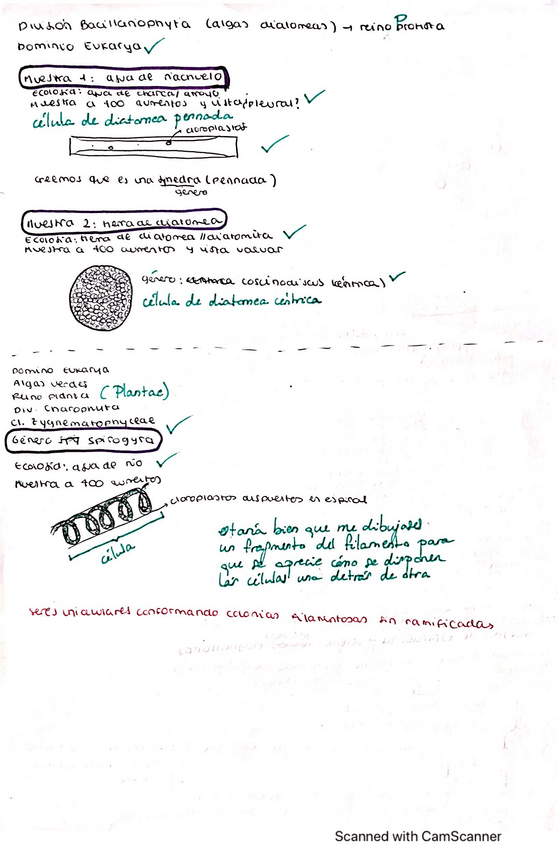 División Bacillariophyta (algas diatomeas) → reino Protista
Dominio Eukarya
Muestra 1: agua de riachuelo
Ecología: agua de charca/arroyo
Muestra a 400 aumentos y vista pleural?
célula de diatomea pennada
cloroplastos
creemos que es una synedra (pennada)
género
Muestra 2: tierra de diatomea
Ecología: tierra de diatomea // diatomita
Muestra a 400 aumentos y vista valvar
género: coscinodiscus (céntrica)
célula de diatomea céntrica
Dominio Eukarya
Algas verdes
Reino Planta (Plantae)
Div. Charophyta
Cl. Zygnematophyceae
Género spirogyra
Ecología: agua de río
Muestra a 400 aumentos
cloroplastos dispuestos en espiral
célula
estaría bien que me dibujases
un fragmento del filamento para
que se aprecie cómo se disponen
las células una detrás de otra
seres unicelulares conformando colonias filamentosas sin ramificadas
Scanned with CamScanner